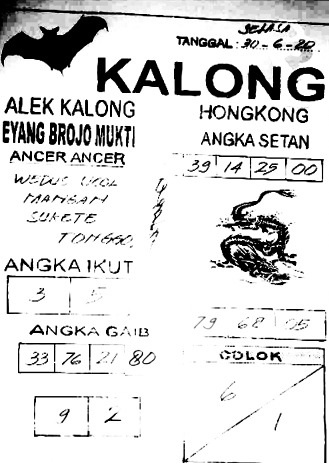 SELASA
TANGGAL : 30-6-20
KALONG
ALEK KALONG
EYANG BROJO MUKTI
ANCER ANCER
WEDUS UCUL
MANGAN
SUKETE
TONGGO
HONGKONG
ANGKA SETAN
39 14 25 00
ANGKA IKUT
3 5
ANGKA GAIB
33 76 21 80
9 2
79 68 05
COLOK
6
1